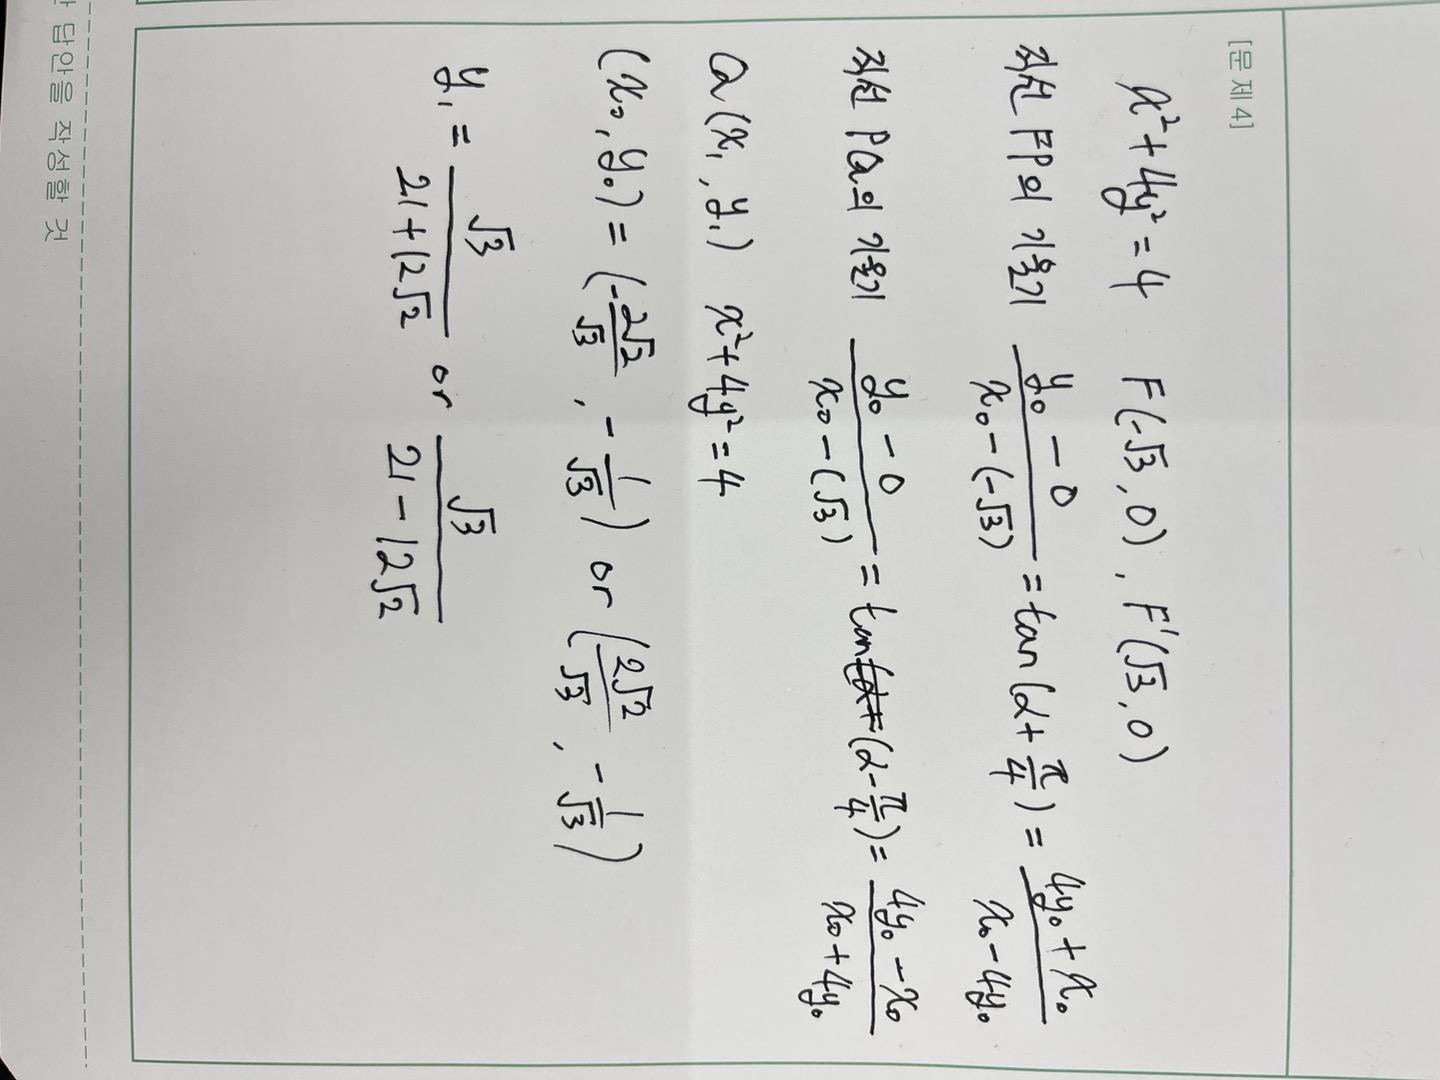 [문제 4]
x² + 4y² = 4   F(-√3, 0), F'(√3, 0)
직선 FP의 기울기 (y₀ - 0)/(x₀ - (-√3)) = tan(α + π/4) = (4y₀ + x₀)/(x₀ - 4y₀)
직선 PQ의 기울기 (y₀ - 0)/(x₀ - (√3)) = tan(α - π/4) = (4y₀ - x₀)/(x₀ + 4y₀)
Q(x₁, y₁)   x² + 4y² = 4
(x₀, y₀) = (-2√2/√3, -1/√3) or (2√2/√3, -1/√3)
y₁ = √3/(21 + 12√2) or √3/(21 - 12√2)
답안을 작성할 것